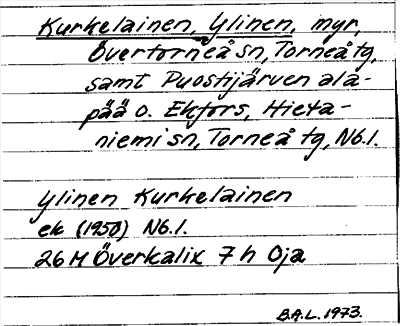 Kurkelainen, Ylinen, myr,
Övertorneå sn, Torneå tg,
samt Puostijärven ala-
pää o. Ekfors, Hieta-
niemi sn, Torneå tg, Nb.l.
Ylinen Kurkelainen
ek (1950) Nb.l.
26 M Överkalix 7 h Oja
B.A.L. 1973.